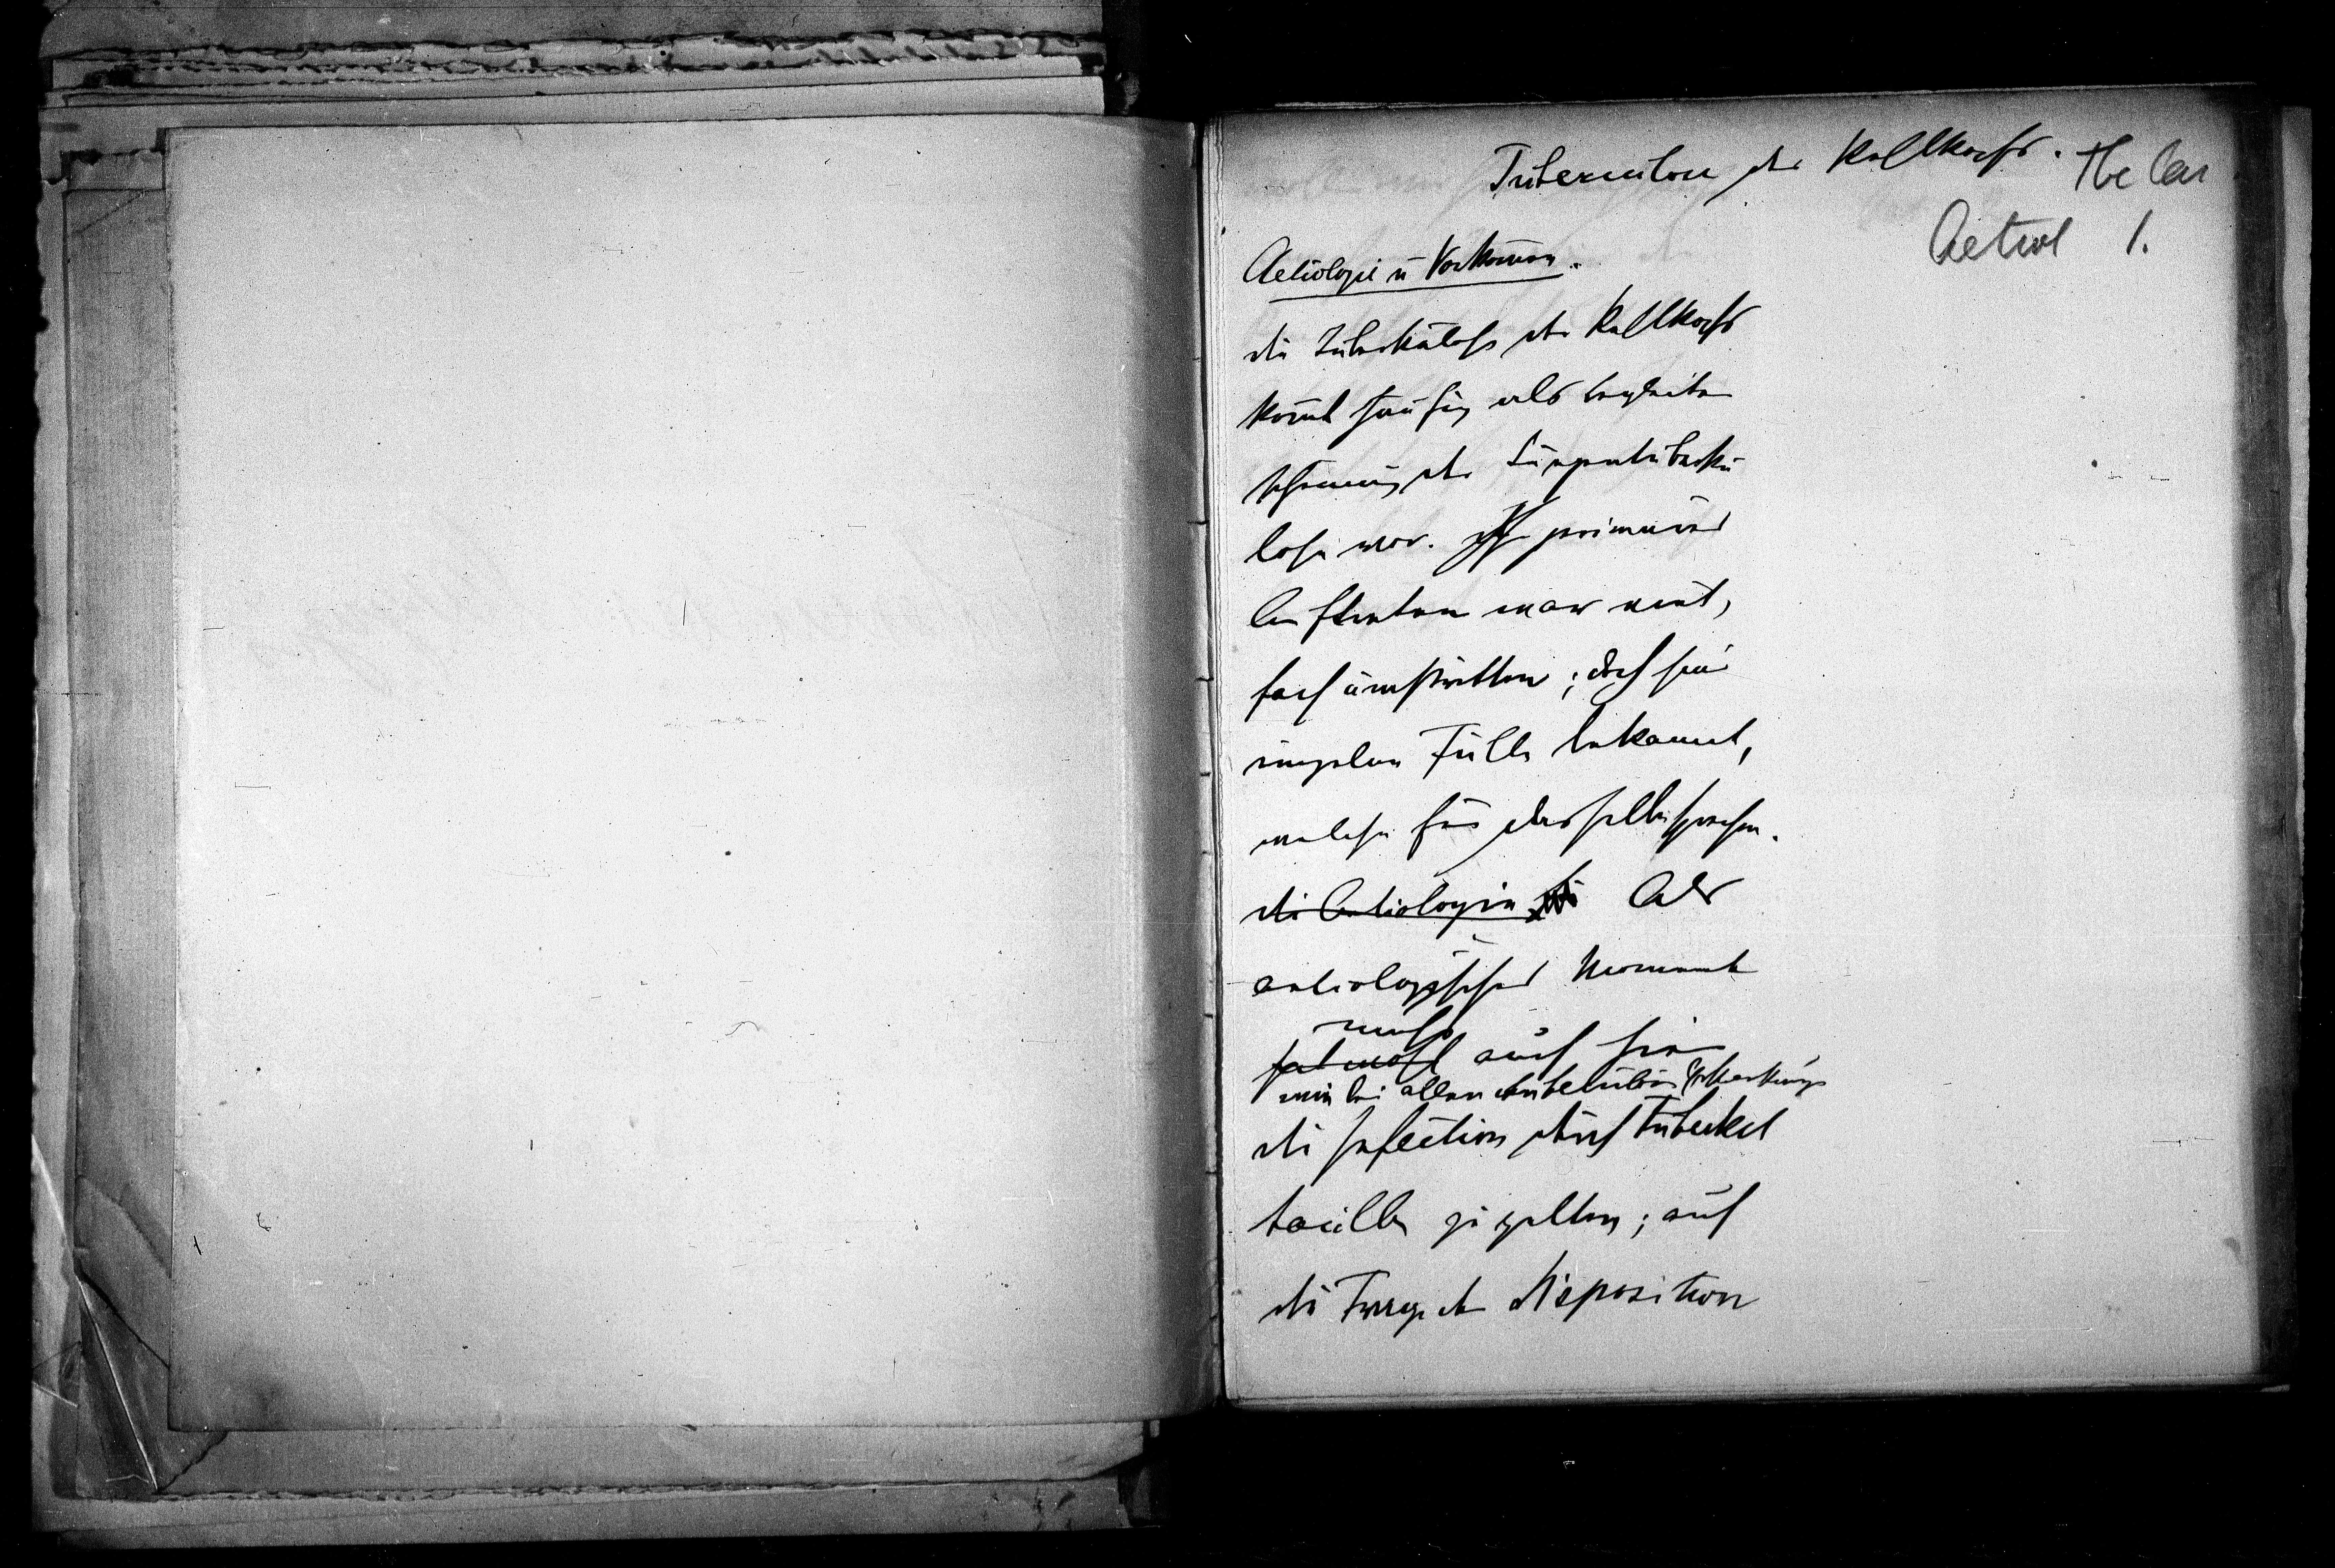 Tuberculose des Kehlkopfs. Tbc Lar
Aetiol 1.
Aetiologie u Vorkommen.
Die Tuberkulose des Kehlkopfs
kommt häufig als begleiter
scheinung der Lungentuberku
lose vor. Ihr primäres
Auftreten war viel
fach umstritten; doch sind
einzelne Fälle bekannt,
welche für dasselbe sprechen.
Die Aetiologie Als
aetiologisches Moment
muss
hat wohl auch hier
wie bei allen tuberculösen Erkrankungen
die Infection durch Tuberkel
bacillen zu gelten; auf
die Frage der Disposition